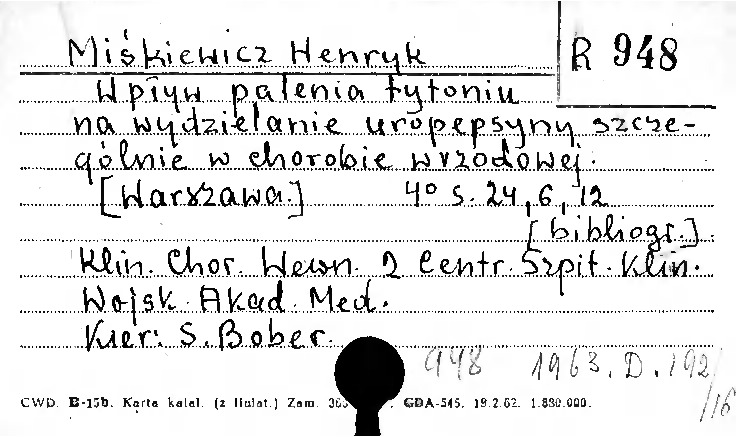 Miśkiewicz Henryk
R 948
Wpływ palenia tytoniu
na wydzielanie uropepsyny szcze-
gólnie w chorobie wrzodowej.
[Warszawa.] 4º s. 24, 6, 12
[bibliogr.]
Klin. Chor. Wewn. 2 Centr. Szpit. Klin.
Wojsk. Akad. Med.
Kier: S. Bober.
948 1963.D.192
/16
CWD. B-15b. Karta katal. (z liniat.) Zam. GDA-545. 19.2.62. 1.830.000.